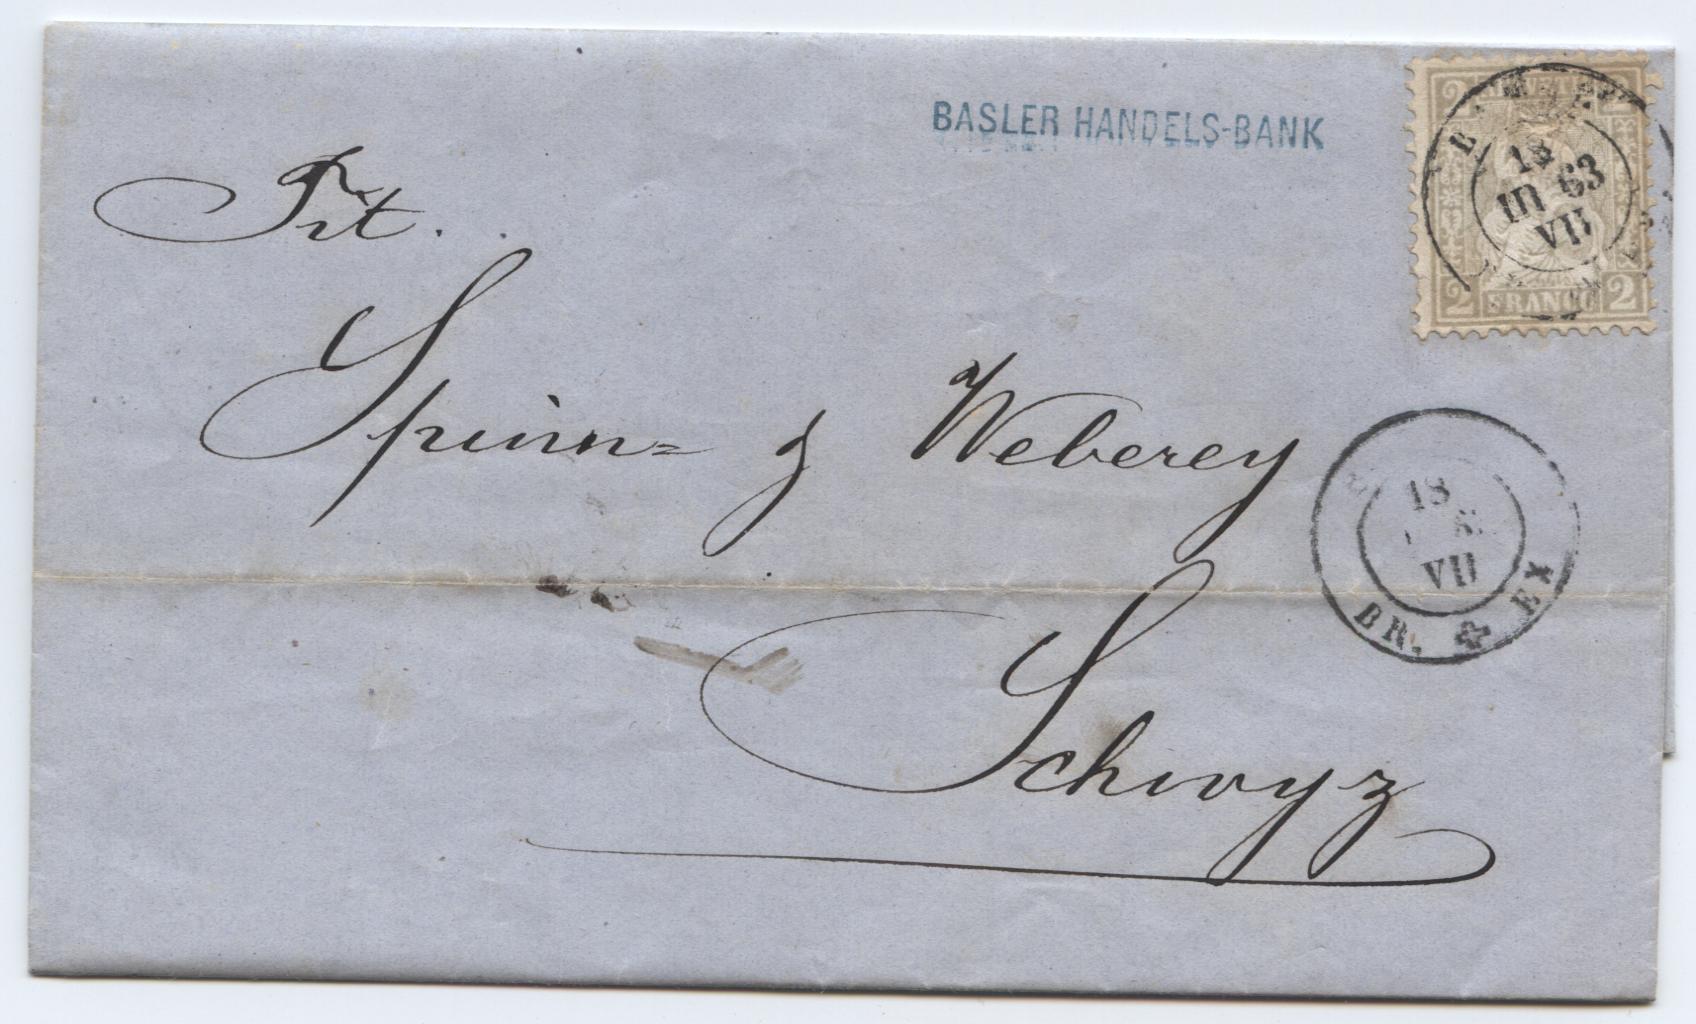 BASLER HANDELS-BANK
2 HELVETIA 2
18
III 63
VII
2 FRANCO 2
Tit.
Spinn= & Weberey
18
VII
BR. EX
Schwyz